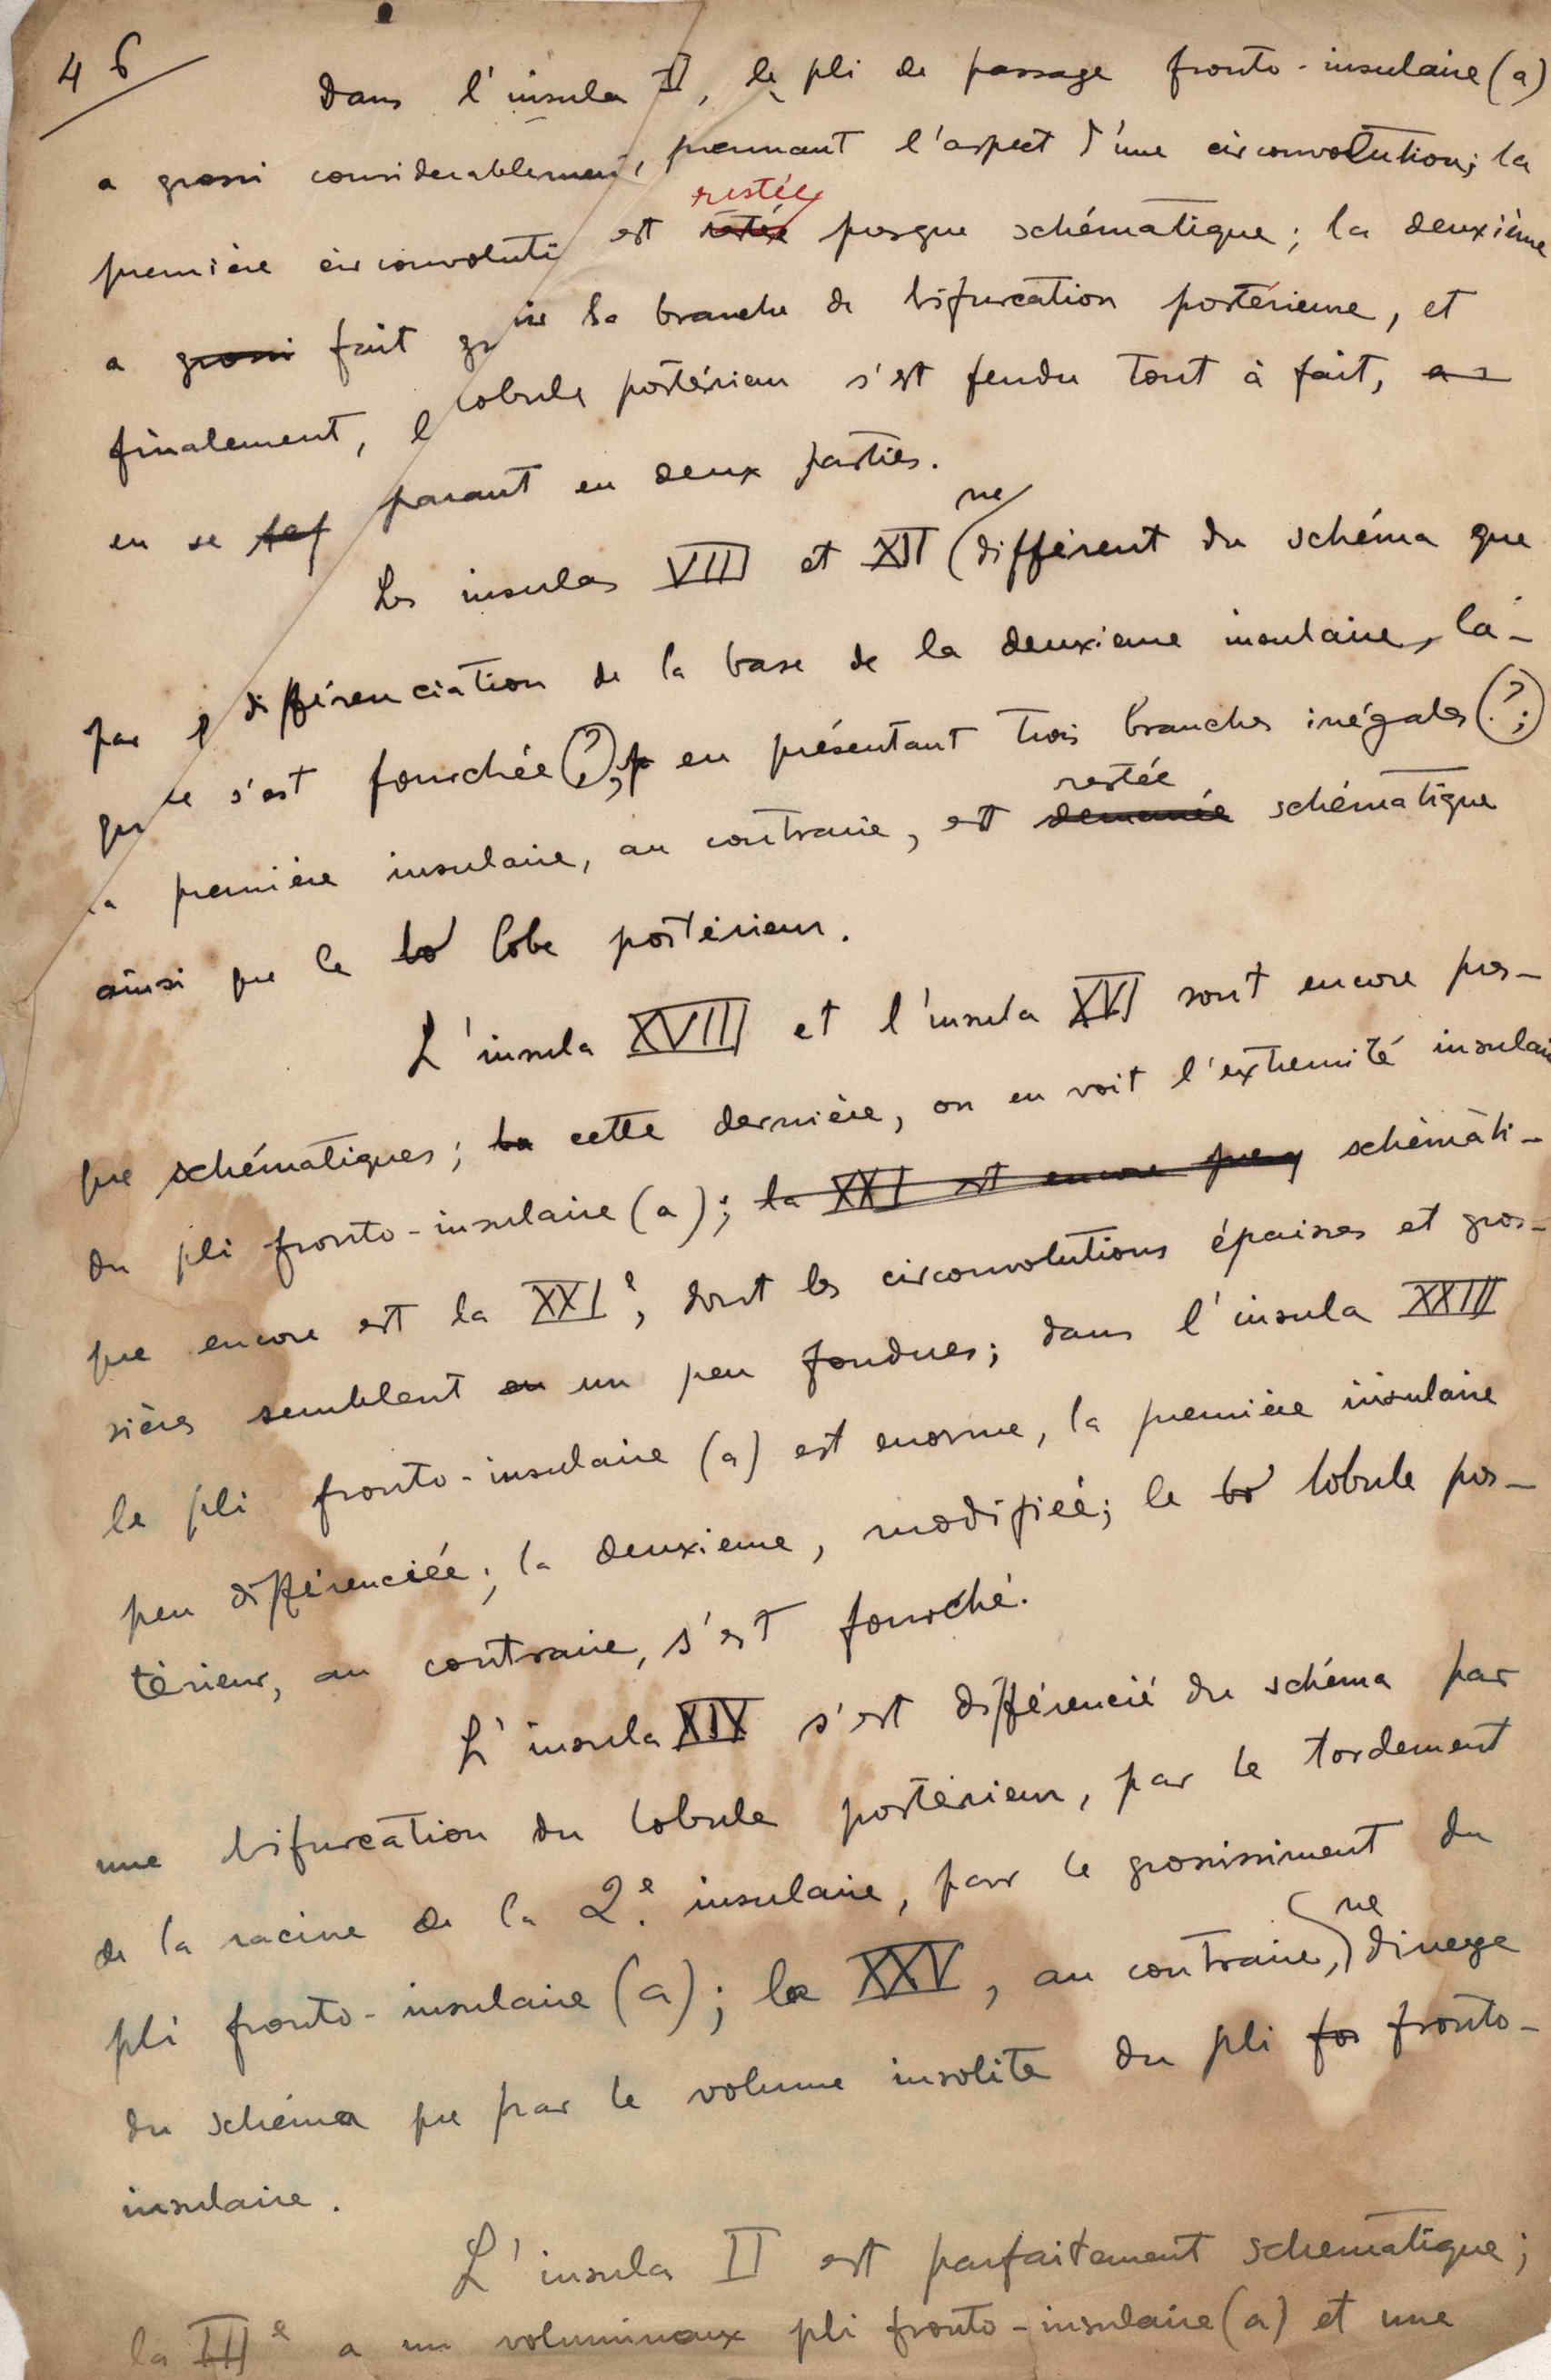 46
Dans l'insula II, le pli de passage fronto-insulaire (a)
a grossi considerablement, prennant l'aspect d'une circonvolution; la
restée
première circonvoluti est restée presque schématique; la deuxième
a grossi fait la branche de bifurcation postérieure, et
finalement, l lobule postérieur s'est fendu tout à fait,
en se parant en deux parties.
ne
Les insulas VIII et XII (différent du schéma que
par l différenciation de la base de la deuxieme insulaire, la-
que s'est fourchée (?), en présentant trois branches inégales (?;
restée
la première insulaire, au contraire, est demeurée schématique
ainsi que le lo lobe postérieur.
L'insula XVIII et l'insula XVI sont encore pres-
que schématiques; la cette dernière, on en voit l'extremité insulai
du pli fronto-insulaire (a); la XXI est encore presq schémati-
que encore est la XXIe, dont les circonvolutions épaisses et gros-
sières semblent en un peu fondues; dans l'insula XXIII
le pli fronto-insulaire (a) est enorme, la première insulaire
peu différenciée; la deuxieme, modifiée; le lo lobule pos-
térieur, au contraire, s'est fourché.
L'insula XIX s'est différencié du schéma par
une bifurcation du lobule postérieur, par le tordement
de la racine de la 2e insulaire, par le grossissiment du
ne
pli fronto-insulaire (a); la XXV, au contraire,) diverge
du schéma que par le volume insolite du pli fro fronto-
insulaire.
L'insula II est parfaitement schematique;
la IIIe a un volumineux pli fronto-insulaire (a) et une